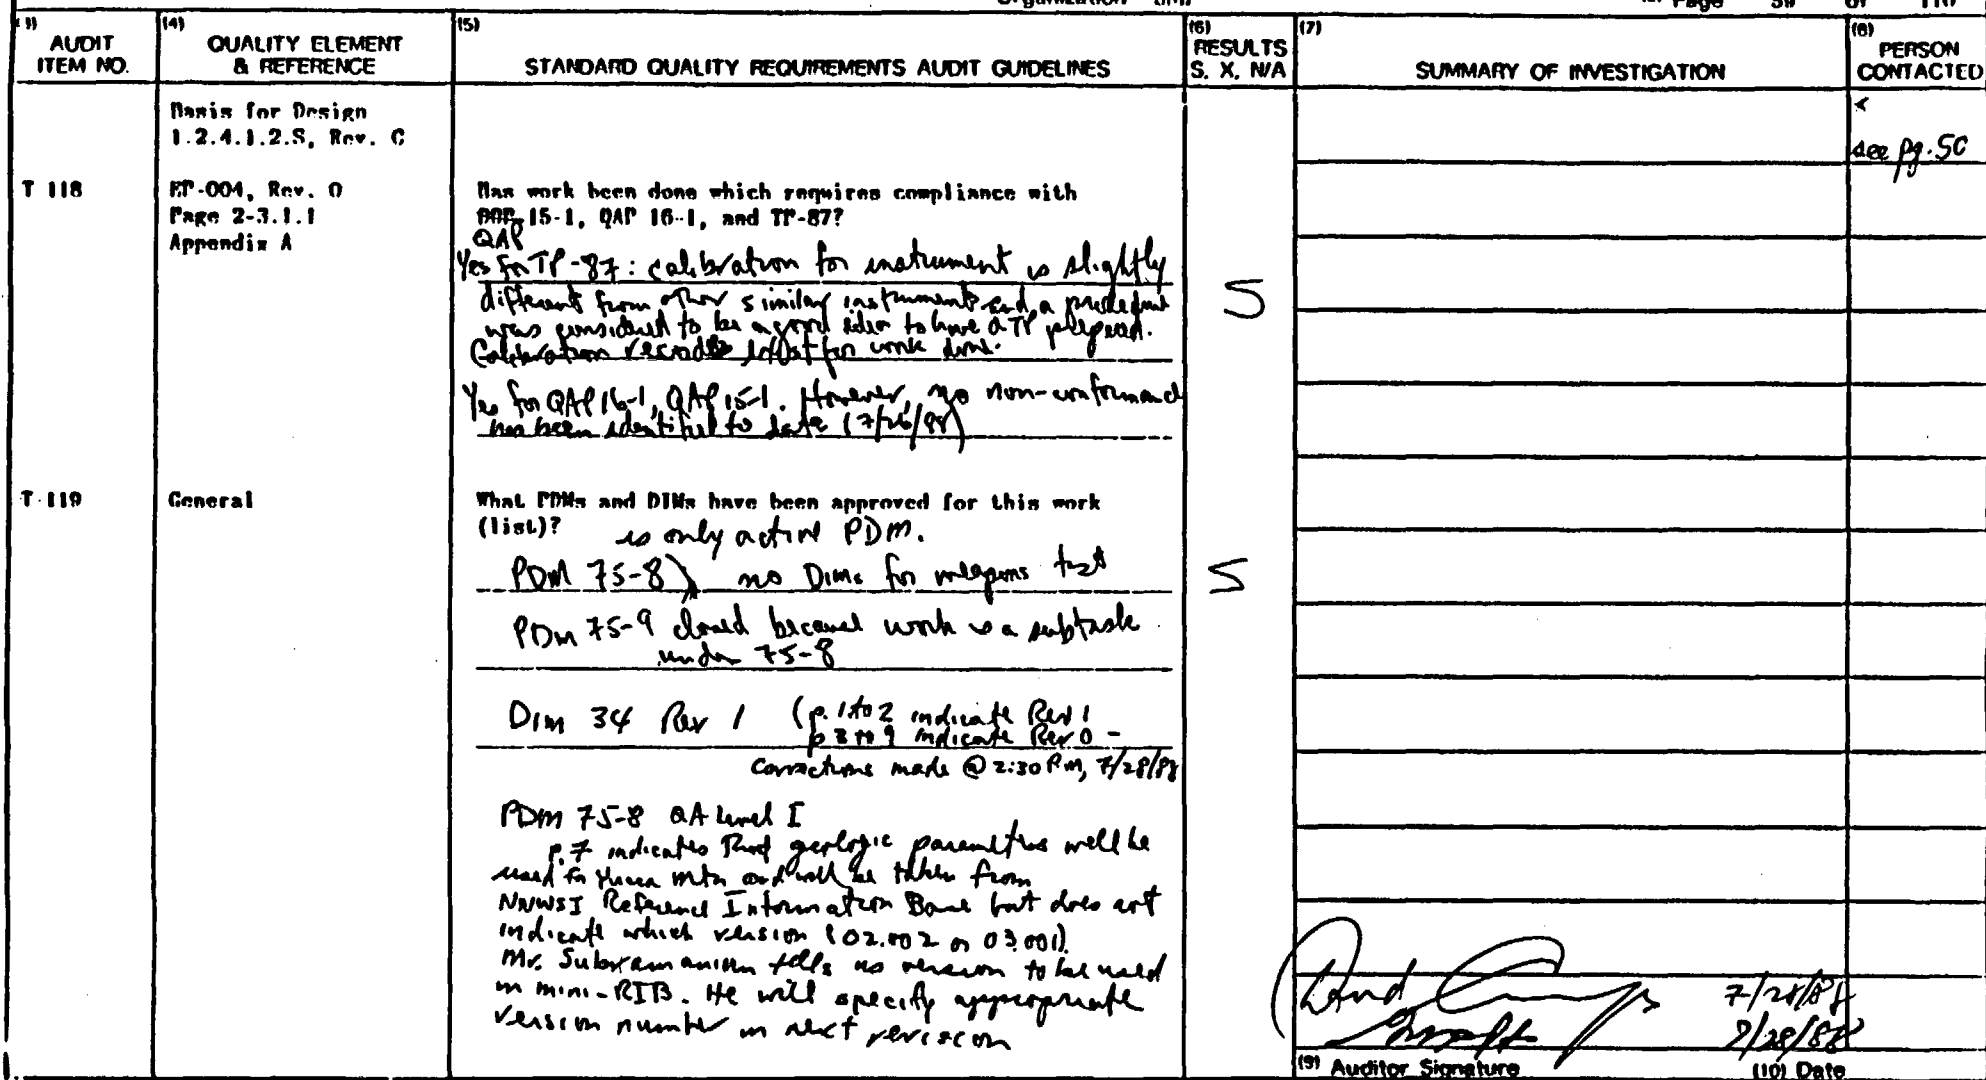 Organization
Page 59 of 110
(4)
(5)
(6)
(7)
(8)
AUDIT ITEM NO.
QUALITY ELEMENT & REFERENCE
STANDARD QUALITY REQUIREMENTS AUDIT GUIDELINES
RESULTS S, X, N/A
SUMMARY OF INVESTIGATION
PERSON CONTACTED
Basis for Design
1.2.4.1.2.S, Rev. C
see pg. 50
T 118
EP-004, Rev. 0
Page 2-3.1.1
Appendix A
Has work been done which requires compliance with
15-1, QAP 16-1, and TP-87?
QAP
Yes for TP-87: calibration for instrument is slightly
different from other similar instruments and a
was considered to be a good idea to have a TP prepared.
Calibration records for work done.
S
Yes for QAP 16-1, QAP 15-1. However, no non-conformance
has been identified to date (7/26/88)
T-119
General
What PDMs and DIMs have been approved for this work
(list)?
is only active PDM.
PDM 75-8) no DIMs for weapons test
S
PDM 75-9 closed because work is a subtask
under 75-8
DIM 34 Rev 1 (p. 1 to 2 indicate Rev 1
p 3 to 9 indicate Rev 0 -
Corrections made @ 2:30 PM, 7/28/88
PDM 75-8 QA Level I
p. 7 indicates that geologic parameters will be
used for Yucca Mtn and will be taken from
NNWSI Reference Information Base but does not
indicate which version (02.002 or 03.001).
Mr. Subramanian tells us version to be used
in mini-RIB. He will specify appropriate
version number in next revision
7/28/88
7/28/88
(9) Auditor Signature
(10) Date